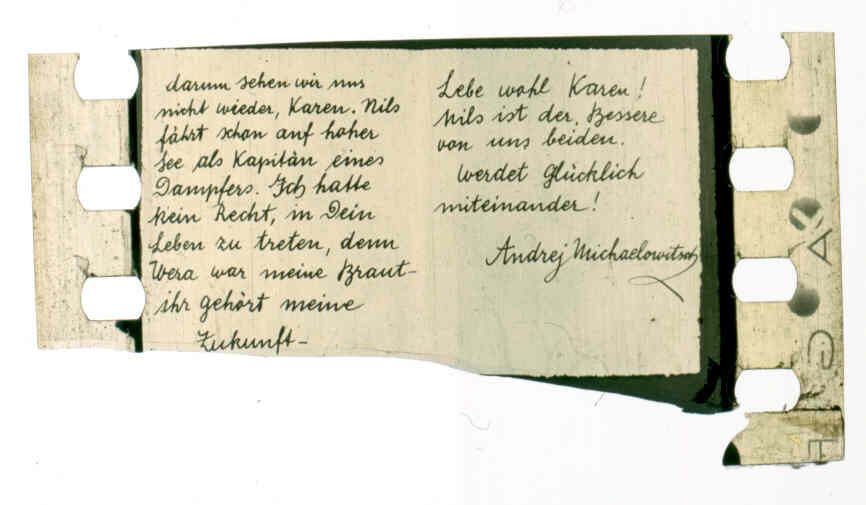 darum sehen wir uns
nicht wieder, Karen. Nils
fährt schon auf hoher
See als Kapitän eines
Dampfers. Ich hatte
kein Recht, in Dein
Leben zu treten, denn
Wera war meine Braut-
ihr gehört meine
Zukunft-
Lebe wohl Karen!
Nils ist der Bessere
von uns beiden.
Werdet glücklich
miteinander!
Andrej Michaelowitsch